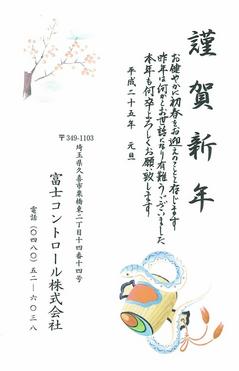 謹賀新年
お健やかに初春をお迎えのことと存じます
昨年は何かとお世話になり有難うございました
本年も何卒よろしくお願い致します
平成二十五年　元旦
〒349-1103
埼玉県久喜市栗橋東二丁目十四番十四号
富士コントロール株式会社
電話（〇四八〇）五二―六〇三八